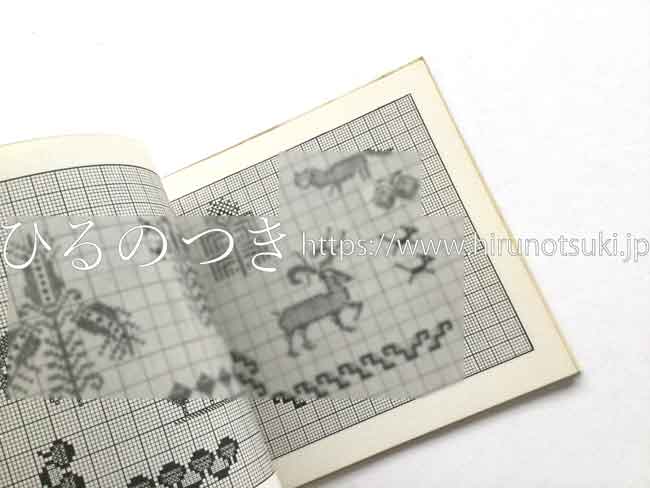 ひるのつき https://www.hirunotsuki.jp